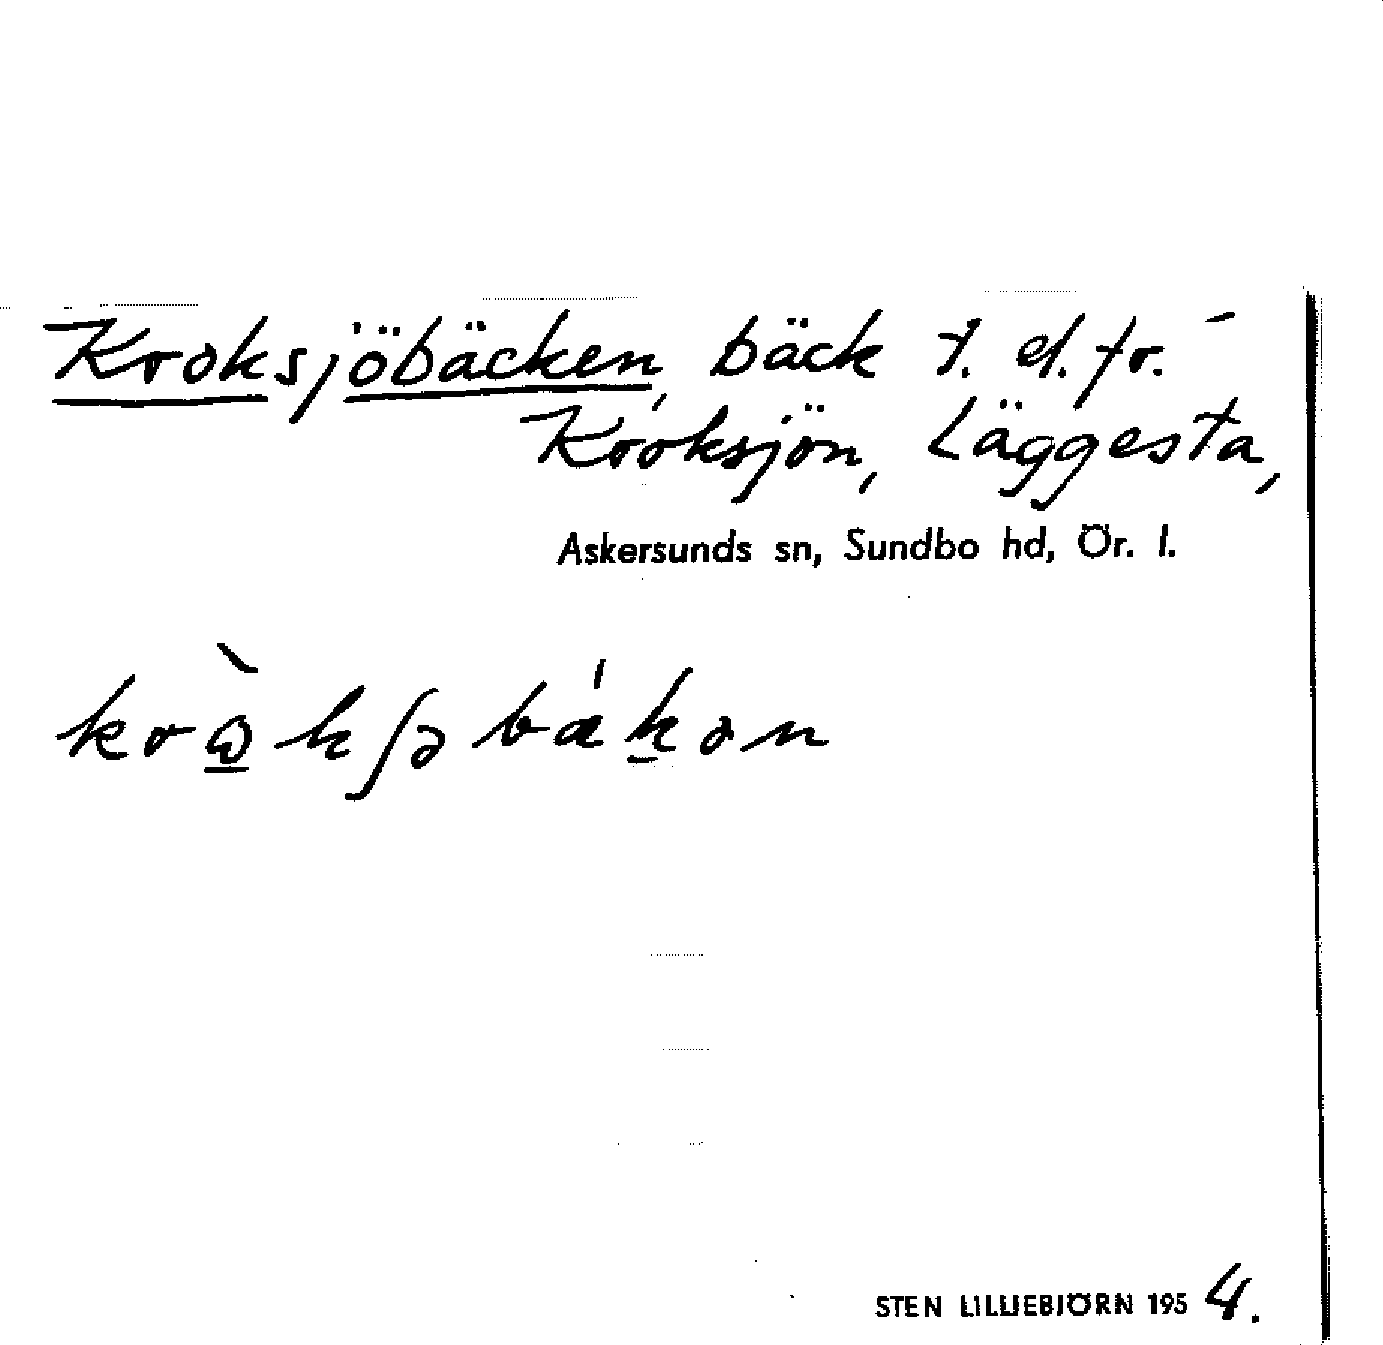 Kroksjöbäcken, bäck t. el. fr. -
Kroksjön, Läggesta,
Askersunds sn, Sundbo hd, Ör. l.
STEN LILLIEBJÖRN 1954.